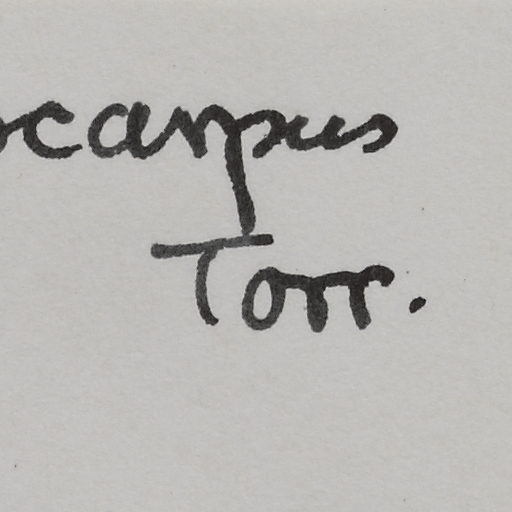 ocarpus
Torr.